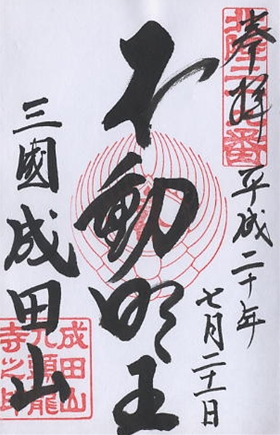 奉拝
平成二十年
七月二十一日
不動明王
三國成田山
成田山
九頭龍
寺之印